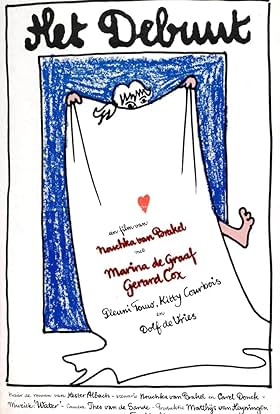 Het Debuut
een film van
Nouchka van Brakel
met
Marina de Graaf
Gerard Cox
Pleuni Touw, Kitty Courbois
en
Dolf de Vries
Naar de roman van Hester Albach - scenario Nouchka van Brakel en Carel Donck -
Muziek "Water" - Camera Theo van de Sande - Produktie Matthijs van Heyningen